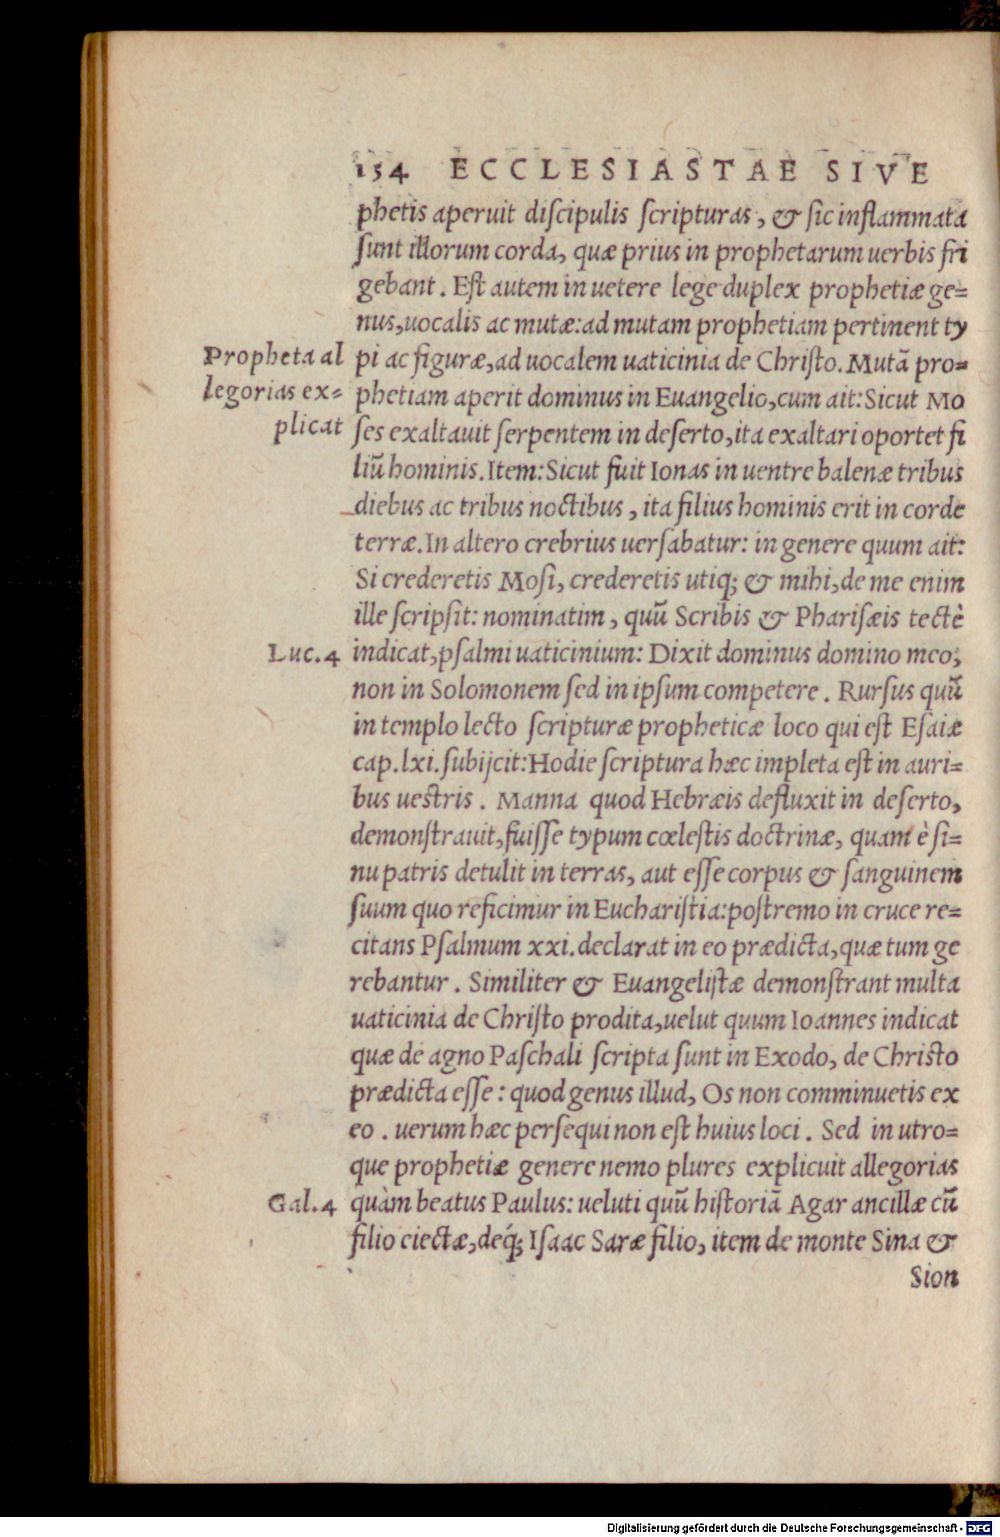 154 ECCLESIASTAE SIVE
phetis aperuit discipulis scripturas, & sic inflammata
sunt illorum corda, quæ prius in prophetarum uerbis fri
gebant. Est autem in uetere lege duplex prophetiæ ge=
nus, uocalis ac mutæ: ad mutam prophetiam pertinent ty
Propheta al
legorias ex=
plicat
pi ac figuræ, ad uocalem uaticinia de Christo. Mutā pro=
phetiam aperit dominus in Euangelio, cum ait: Sicut Mo
ses exaltauit serpentem in deserto, ita exaltari oportet fi
liū hominis. Item: Sicut fuit Ionas in uentre balenæ tribus
diebus ac tribus noctibus, ita filius hominis erit in corde
terræ. In altero crebrius uersabatur: in genere quum ait:
Si crederetis Mosi, crederetis utiq; & mihi, de me enim
ille scripsit: nominatim, quū Scribis & Pharisæis tectè
Luc. 4
indicat, psalmi uaticinium: Dixit dominus domino meo,
non in Solomonem sed in ipsum competere. Rursus quū
in templo lecto scripturæ propheticæ loco qui est Esaiæ
cap. lxi. subijcit: Hodie scriptura hæc impleta est in auri=
bus uestris. Manna quod Hebræis defluxit in deserto,
demonstrauit, fuisse typum cœlestis doctrinæ, quam è si=
nu patris detulit in terras, aut esse corpus & sanguinem
suum quo reficimur in Eucharistia: postremo in cruce re=
citans Psalmum xxi. declarat in eo prædicta, quæ tum ge
rebantur. Similiter & Euangelistæ demonstrant multa
uaticinia de Christo prodita, uelut quum Ioannes indicat
quæ de agno Paschali scripta sunt in Exodo, de Christo
prædicta esse: quod genus illud, Os non comminuetis ex
eo. uerum hæc persequi non est huius loci. Sed in utro=
que prophetiæ genere nemo plures explicuit allegorias
Gal. 4
quàm beatus Paulus: ueluti quū historiā Agar ancillæ cū
filio eiectæ, deq́; Isaac Saræ filio, item de monte Sina &
Sion
Digitalisierung gefördert durch die Deutsche Forschungsgemeinschaft - DFG